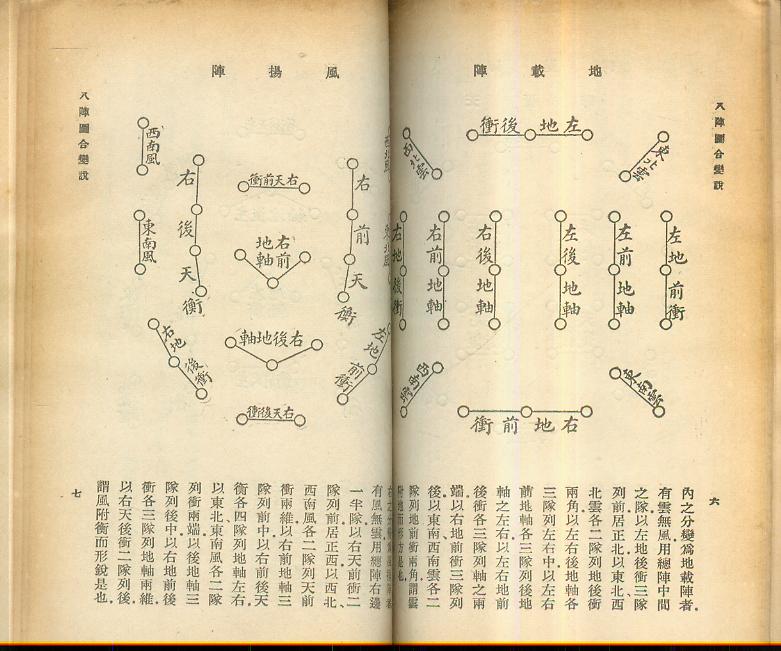 八陣圖合變說
地載陣
左地後衝
東北雲
西北雲
左地前衝
左前地軸
左後地軸
右後地軸
右前地軸
右地後衝
東南雲
西南雲
右地前衝
內之分變爲地載陣者.
有雲無風用總陣中間
之隊以左地後衝三隊
列前居正北以東北西
北雲各二隊列地後衝
兩角以左右後地軸各
三隊列左右中以左右
前地軸各三隊列後地
軸之左右以左右地前
後衝各三隊列軸之兩
端以右地前衝三隊列
後以東南西南雲各二
隊列地前衝兩角謂雲
附地而形方是也.
六
風揚陣
西北風
東北風
右前天衡
右天前衝
右前地軸
右後地軸
右天後衝
左地前衝
右後天衡
右地後衝
西南風
東南風
有風無雲用總陣右邊
一半隊以右天前衝二
隊列前居正西以西北
西南風各二隊列天前
衝兩維以右前地軸三
隊列前中以右前後天
衡各四隊列地軸左右.
以東北東南風各二隊
列衝兩端以後地軸三
隊列後中以右地前後
衝各三隊列地軸兩維.
以右天後衝二隊列後.
謂風附衡而形銳是也.
八陣圖合變說
七